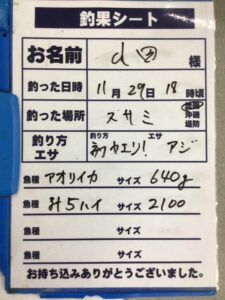 釣果シート
お名前 山田 様
釣った日時 11月29日18時頃
釣った場所 スサミ 地磯 沖磯 堤防
釣り方 エサ 釣り方 ヤエン! エサ アジ
魚種 アオリイカ サイズ 640g
魚種 計5ハイ サイズ 2100
魚種 サイズ
魚種 サイズ
お持ち込みありがとうございました。